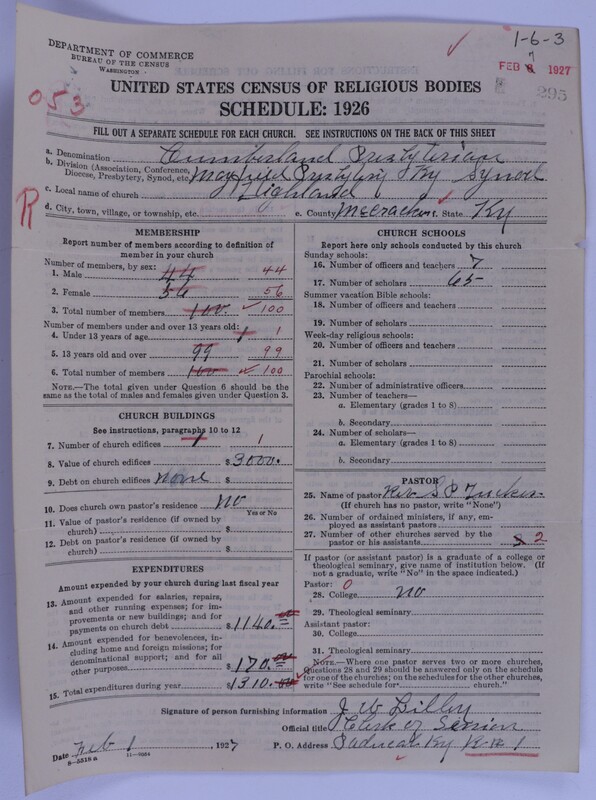 1-6-3
DEPARTMENT OF COMMERCE
BUREAU OF THE CENSUS
WASHINGTON
FEB 8 1927
7
295
053
UNITED STATES CENSUS OF RELIGIOUS BODIES
SCHEDULE: 1926
FILL OUT A SEPARATE SCHEDULE FOR EACH CHURCH. SEE INSTRUCTIONS ON THE BACK OF THIS SHEET
a. Denomination Cumberland Presbyterian
b. Division (Association, Conference, Diocese, Presbytery, Synod, etc. Mayfield Presbytery Ky Synod
c. Local name of church Highland
d. City, town, village, or township, etc. e. County McCracken f. State Ky
R
MEMBERSHIP
Report number of members according to definition of member in your church
Number of members, by sex:
1. Male 44 44
2. Female 56 56
3. Total number of members 100 ✓ 100
Number of members under and over 13 years old:
4. Under 13 years of age 1 1
5. 13 years old and over 99 99
6. Total number of members 100 ✓ 100
NOTE.—The total given under Question 6 should be the same as the total of males and females given under Question 3.
CHURCH BUILDINGS
See instructions, paragraphs 10 to 12
7. Number of church edifices 1 1
8. Value of church edifices $ 3000.
9. Debt on church edifices None $
10. Does church own pastor's residence? No
Yes or No
11. Value of pastor's residence (if owned by church) $
12. Debt on pastor's residence (if owned by church) $
EXPENDITURES
Amount expended by your church during last fiscal year
13. Amount expended for salaries, repairs, and other running expenses; for improvements or new buildings; and for payments on church debt $ 1140.00
14. Amount expended for benevolences, including home and foreign missions; for denominational support; and for all other purposes $ 170.00
15. Total expenditures during year $ 1310.00
CHURCH SCHOOLS
Report here only schools conducted by this church
Sunday schools:
16. Number of officers and teachers 7
17. Number of scholars 65
Summer vacation Bible schools:
18. Number of officers and teachers
19. Number of scholars
Week-day religious schools:
20. Number of officers and teachers
21. Number of scholars
Parochial schools:
22. Number of administrative officers
23. Number of teachers—
a. Elementary (grades 1 to 8)
b. Secondary
24. Number of scholars—
a. Elementary (grades 1 to 8)
b. Secondary
PASTOR
25. Name of pastor Rev. S P Tucker
(If church has no pastor, write "None")
26. Number of ordained ministers, if any, employed as assistant pastors
27. Number of other churches served by the pastor or his assistants 2
If pastor (or assistant pastor) is a graduate of a college or theological seminary, give name of institution below. (If not a graduate, write "No" in the space indicated.)
Pastor: 0
28. College no
29. Theological seminary
Assistant pastor:
30. College
31. Theological seminary
NOTE.—Where one pastor serves two or more churches, Questions 28 and 29 should be answered only on the schedule for one of the churches; on the schedules for the other churches, write "See schedule for church."
Signature of person furnishing information
Official title Clerk of Session
Date Feb 1, 1927 P. O. Address Paducah Ky R-R 1
8—5518 a 11—9264